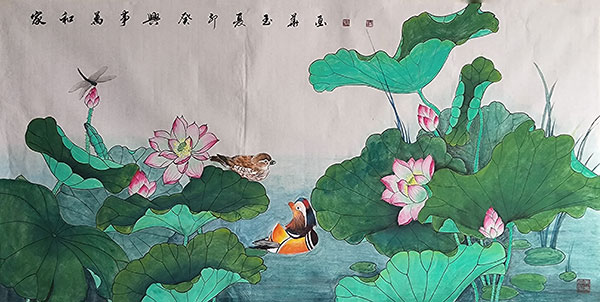 家和萬事興癸卯夏玉華画